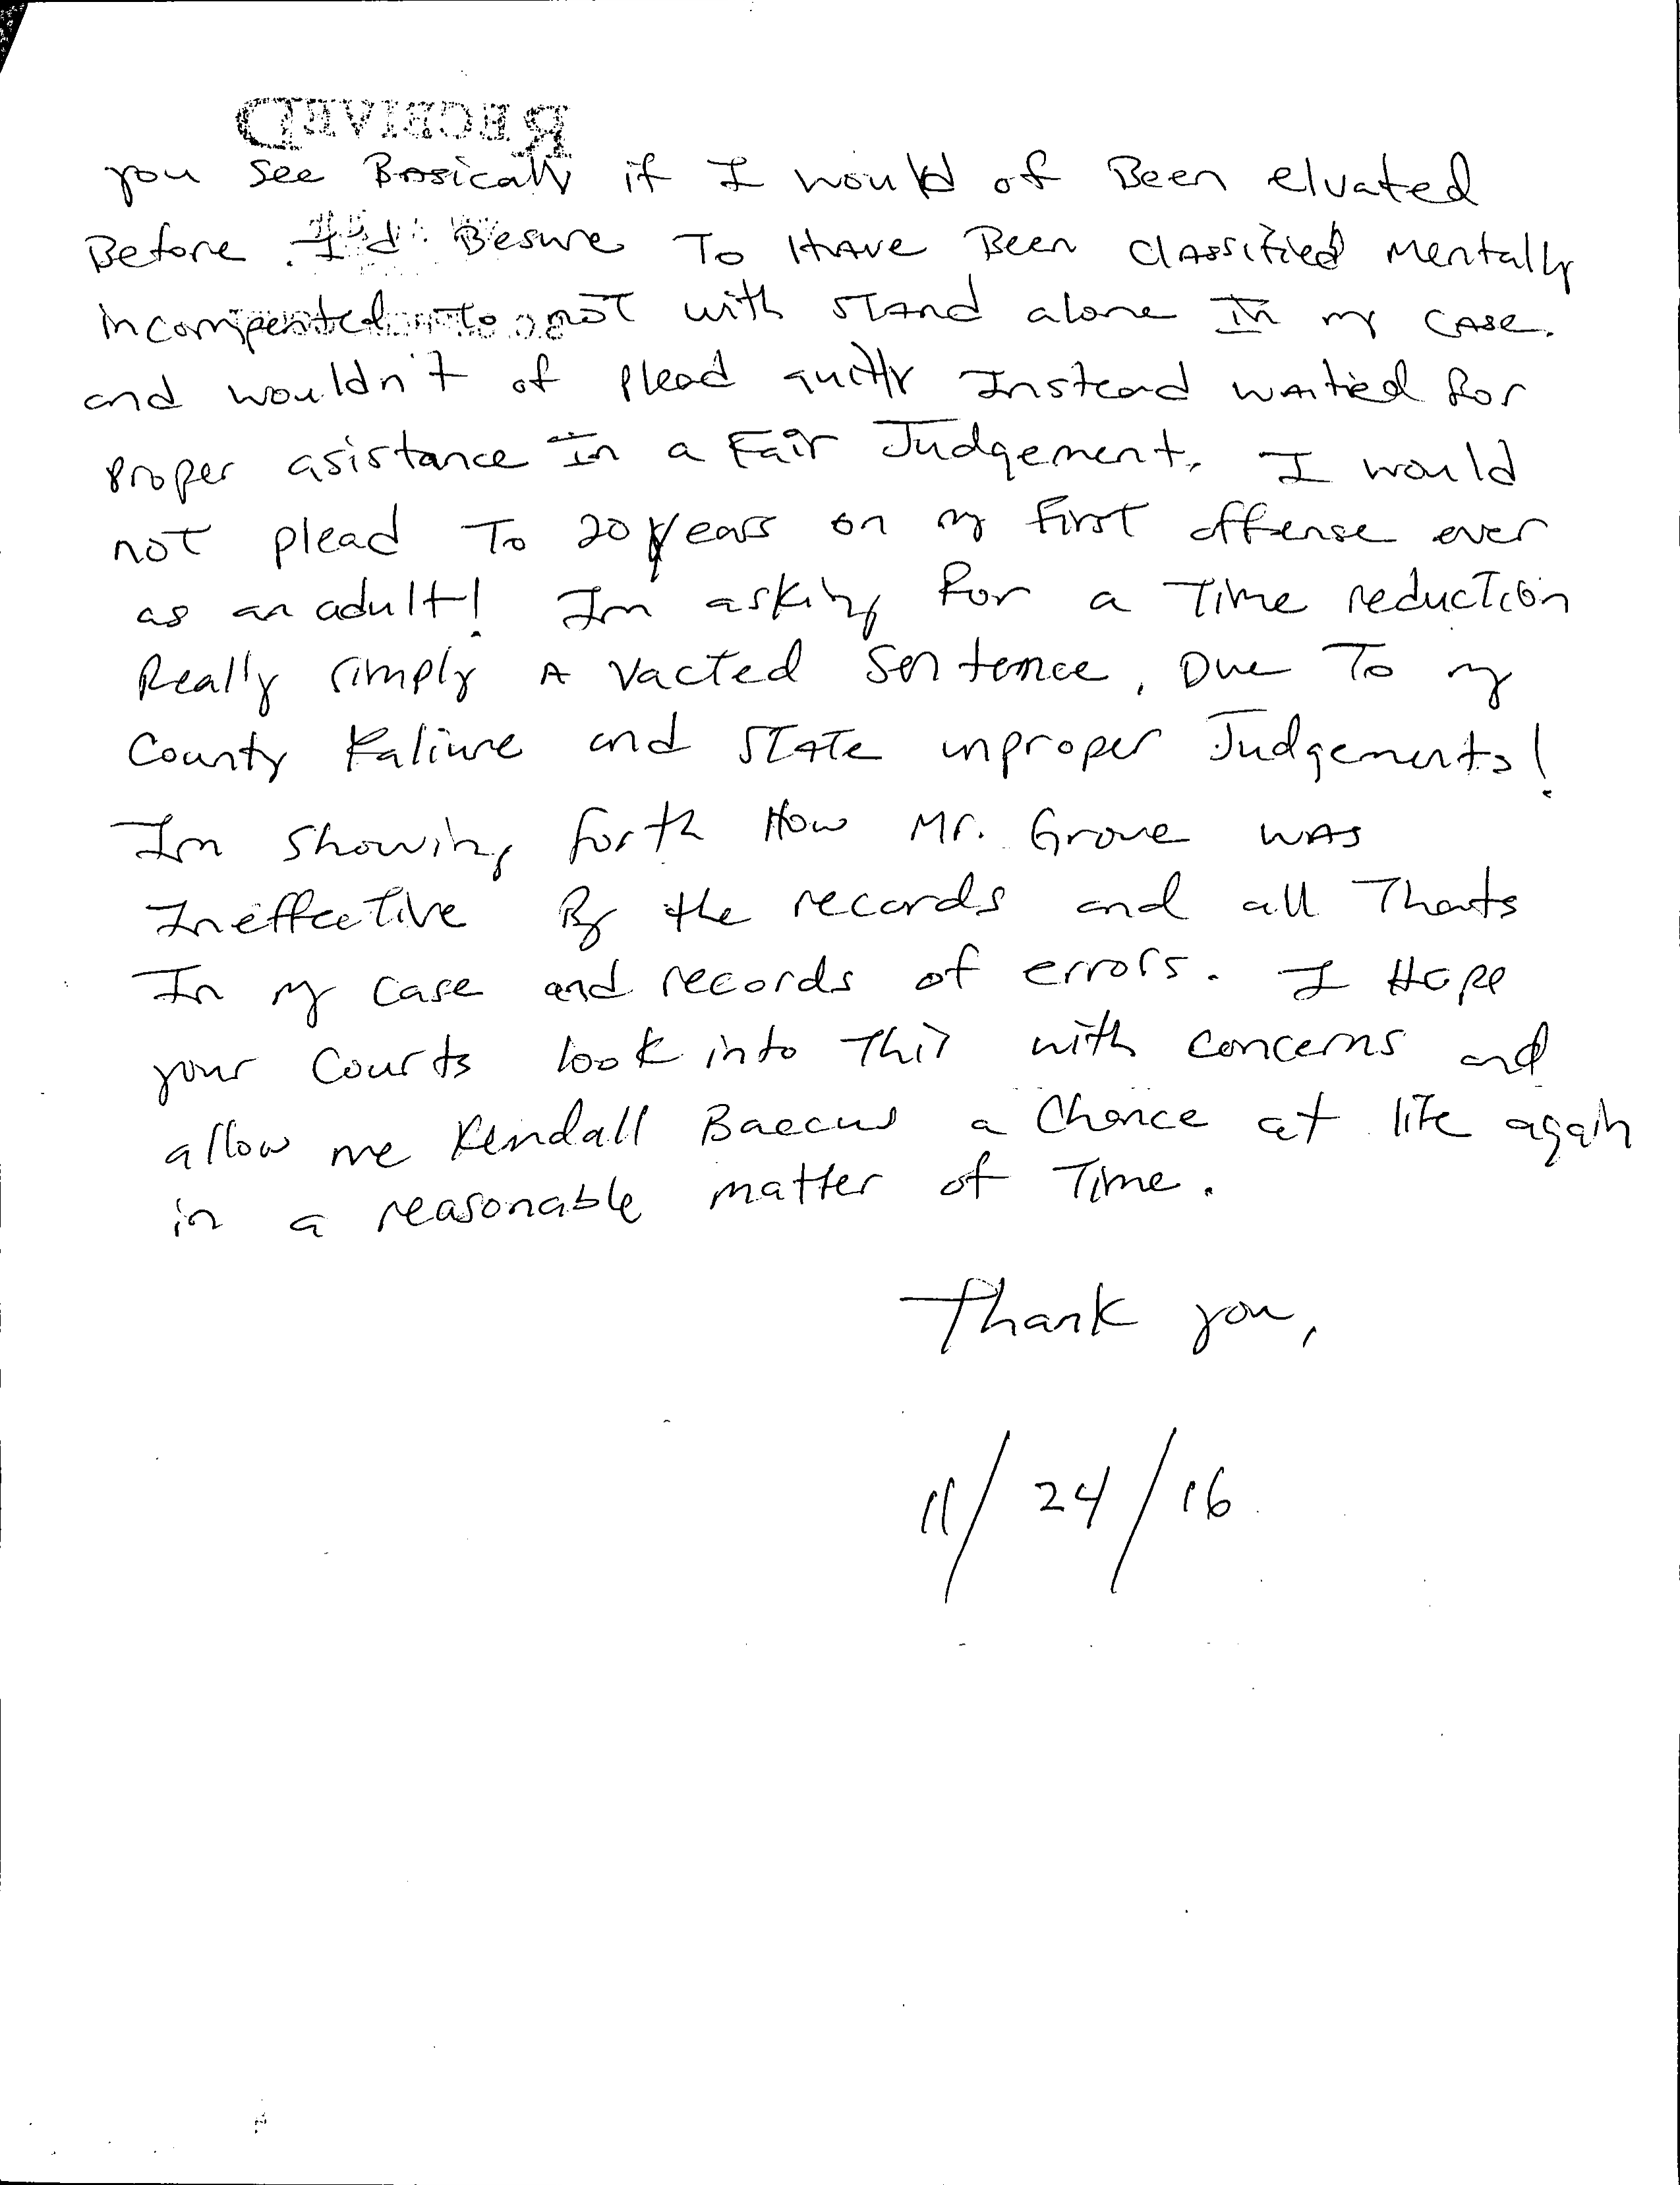 RECEIVED
you see Basically if I would of Been elvated
Before. I'd Besure To HAve Been ClAssified mentally
incompented to not with STAnd alone In my CASe.
and wouldn't of plead guilty Instead waitied for
proper asistance In a Fair Judgement. I would
not plead To 20 years on my first offense ever
as an adult! Im asking for a Time reduction
Really simply A Vacted Sentence, Due To my
County Faliure and STATe inproper Judgements!
Im showing forth How Mr. Grove WAS
Ineffective By the records and all Thats
In my case and records of errors. I Hope
your Courts look into This with concerns and
allow me Kendall Baccus a Chance at life again
in a reasonable matter of Time.
Thank you,
11/24/16